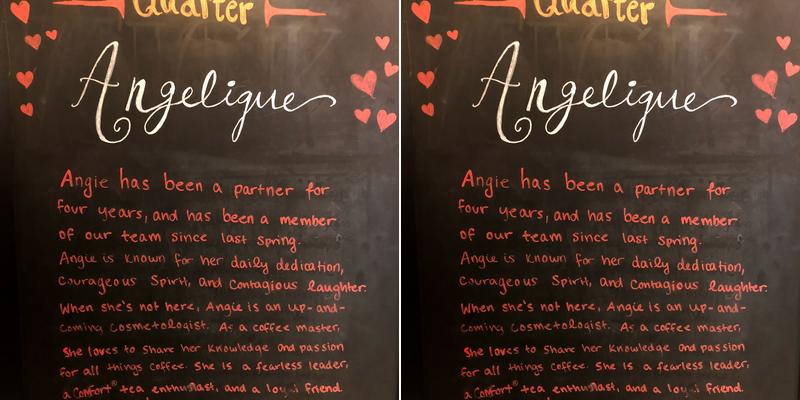 Quarter
Angelique
Angie has been a partner for
four years, and has been a member
of our team since last spring.
Angie is known for her daily dedication,
courageous Spirit, and contagious laughter.
When she's not here, Angie is an up-and-
coming cosmetologist. As a coffee master,
She loves to share her knowledge and passion
for all things coffee. She is a fearless leader,
a Comfort® tea enthusiast, and a loyal friend.
Quarter
Angelique
Angie has been a partner for
four years, and has been a member
of our team since last spring.
Angie is known for her daily dedication,
courageous Spirit, and contagious laughter.
When she's not here, Angie is an up-and-
coming cosmetologist. As a coffee master,
She loves to share her knowledge and passion
for all things coffee. She is a fearless leader,
a Comfort® tea enthusiast, and a loyal friend.